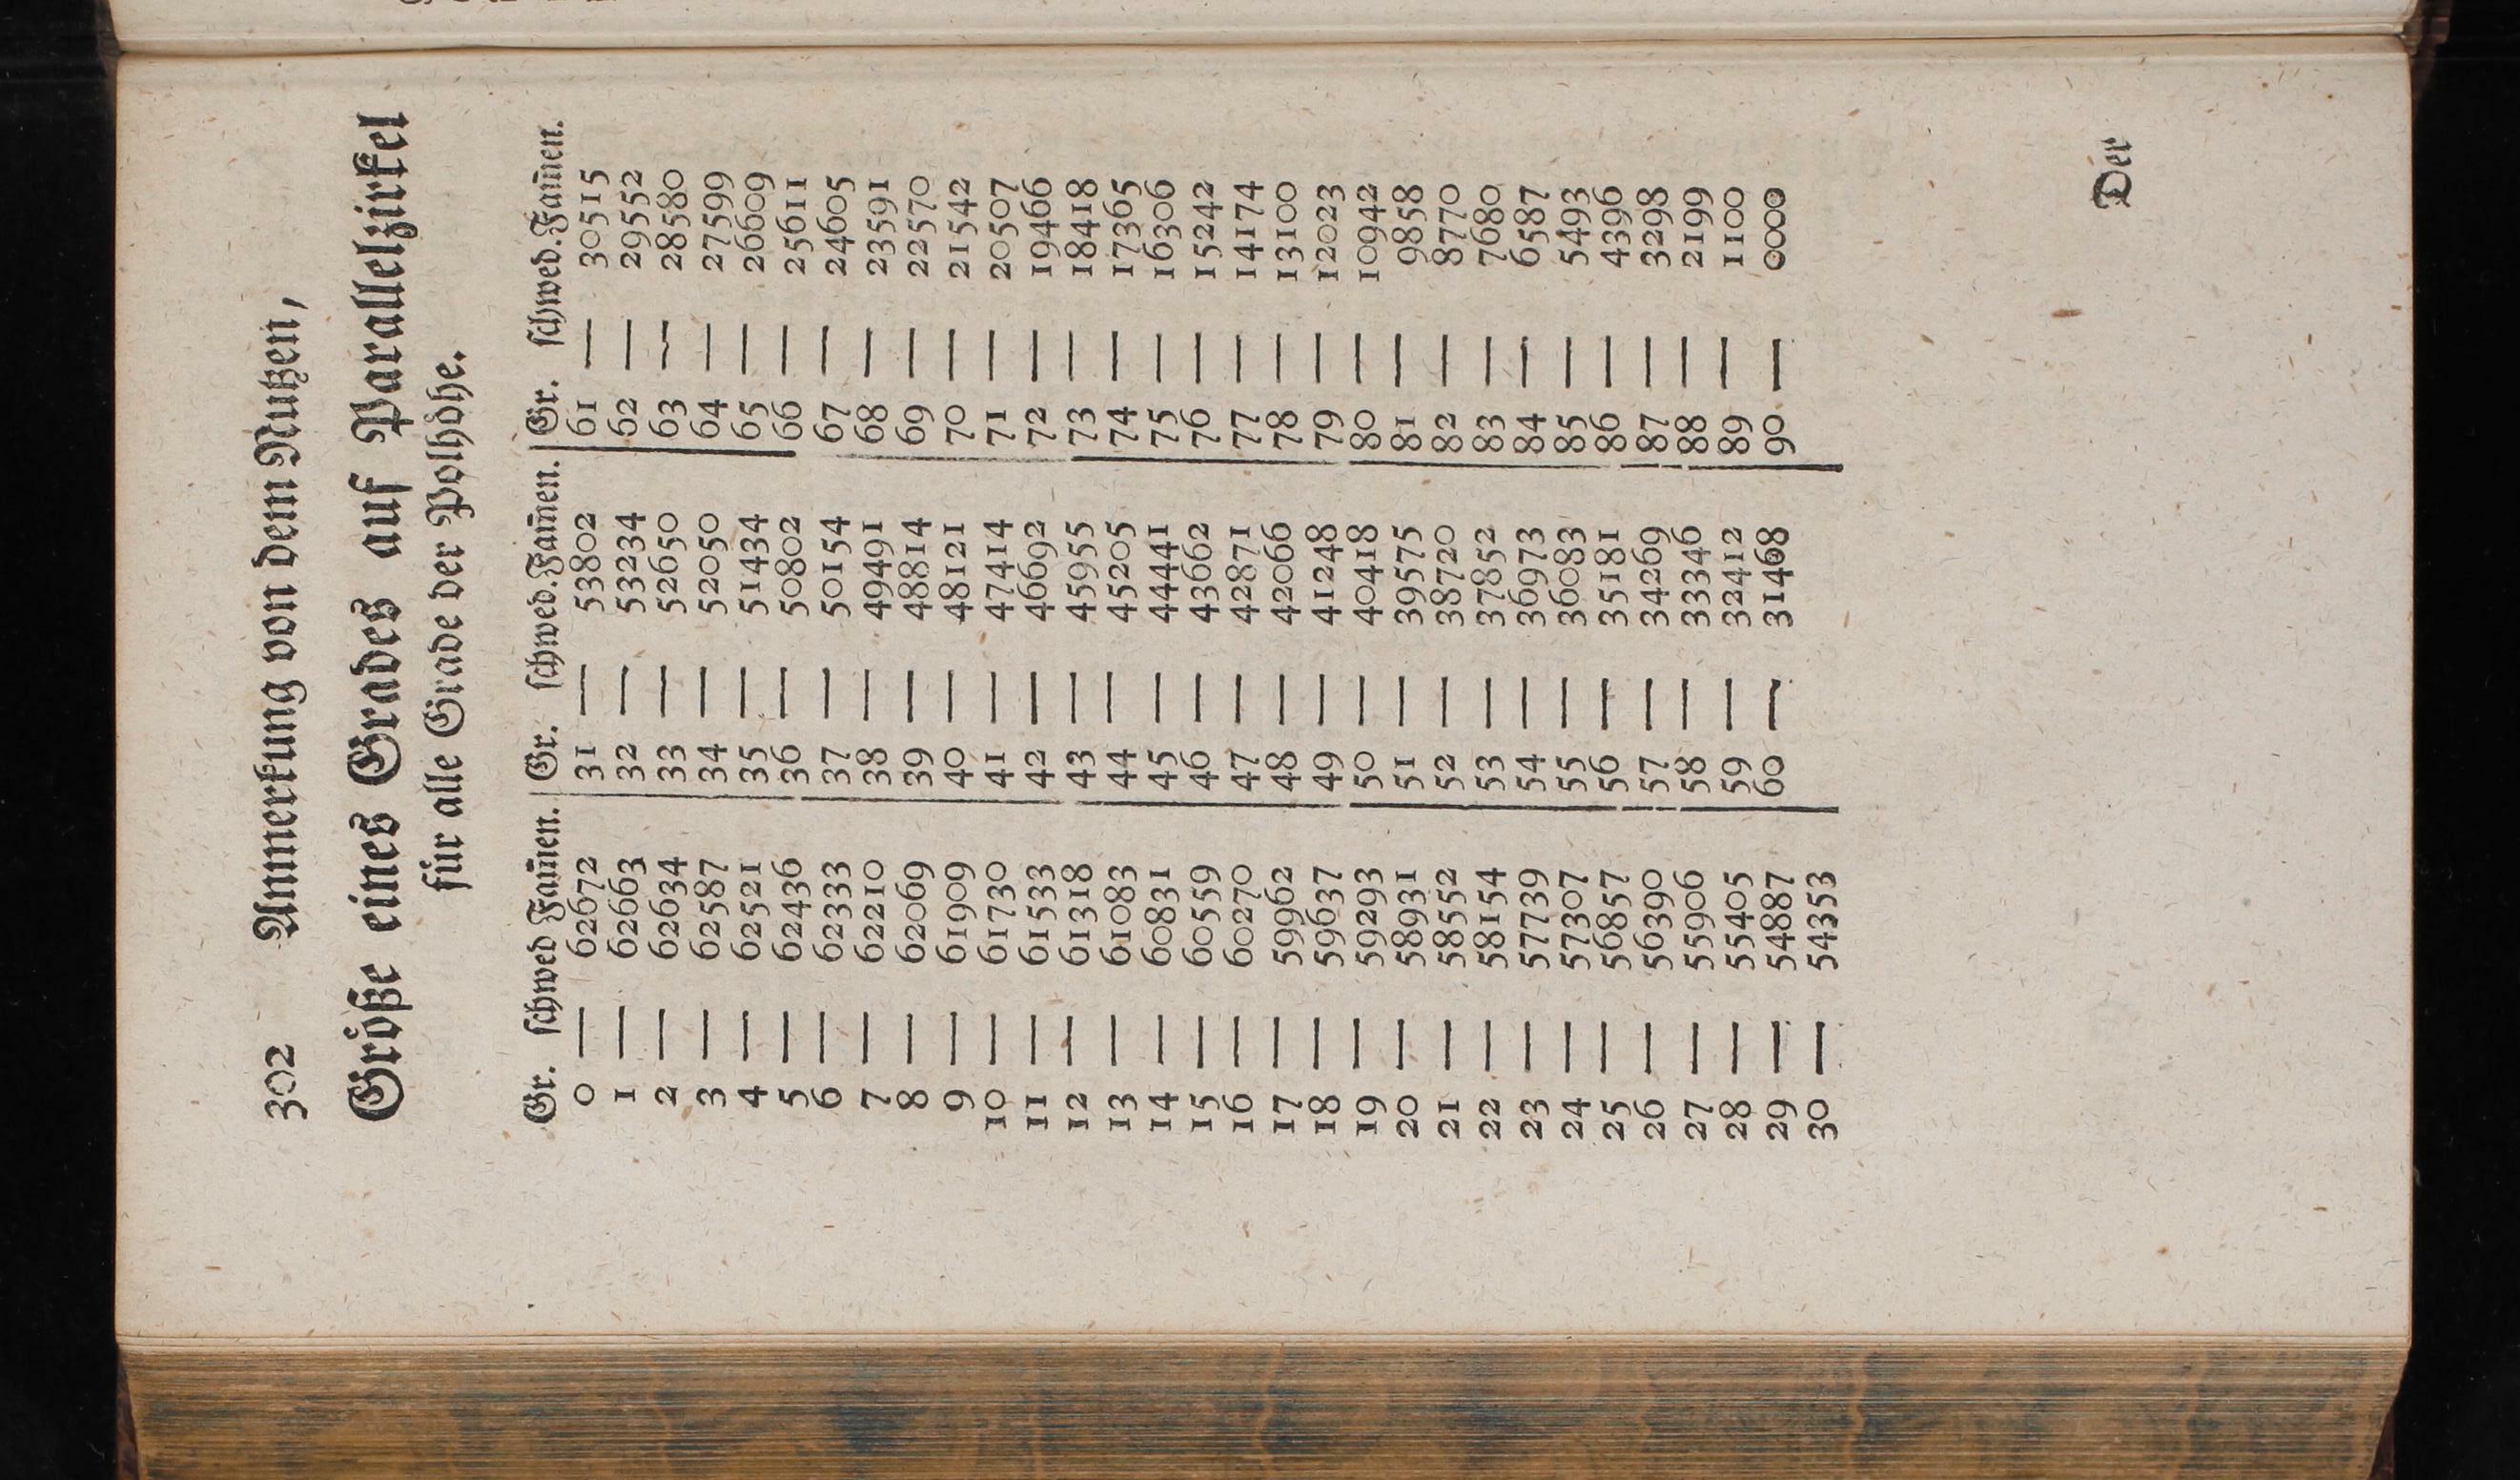 302 Anmerkung von dem Nutzen,
Größe eines Grades auf Parallelzirkel
für alle Grade der Polhöhe.
Gr. schwed Fam̄en. | Gr. schwed.Fam̄en. | Gr. schwed.Fam̄en.
0 — 62672 | 31 — 53802 | 61 — 30515
1 — 62663 | 32 — 53234 | 62 — 29552
2 — 62634 | 33 — 52650 | 63 — 28580
3 — 62587 | 34 — 52050 | 64 — 27599
4 — 62521 | 35 — 51434 | 65 — 26609
5 — 62436 | 36 — 50802 | 66 — 25611
6 — 62333 | 37 — 50154 | 67 — 24605
7 — 62210 | 38 — 49491 | 68 — 23591
8 — 62069 | 39 — 48814 | 69 — 22570
9 — 61909 | 40 — 48121 | 70 — 21542
10 — 61730 | 41 — 47414 | 71 — 20507
11 — 61533 | 42 — 46692 | 72 — 19466
12 — 61318 | 43 — 45955 | 73 — 18418
13 — 61083 | 44 — 45205 | 74 — 17365
14 — 60831 | 45 — 44441 | 75 — 16306
15 — 60559 | 46 — 43662 | 76 — 15242
16 — 60270 | 47 — 42871 | 77 — 14174
17 — 59962 | 48 — 42066 | 78 — 13100
18 — 59637 | 49 — 41248 | 79 — 12023
19 — 59293 | 50 — 40418 | 80 — 10942
20 — 58931 | 51 — 39575 | 81 — 9858
21 — 58552 | 52 — 38720 | 82 — 8770
22 — 58154 | 53 — 37852 | 83 — 7680
23 — 57739 | 54 — 36973 | 84 — 6587
24 — 57307 | 55 — 36083 | 85 — 5493
25 — 56857 | 56 — 35181 | 86 — 4396
26 — 56390 | 57 — 34269 | 87 — 3298
27 — 55906 | 58 — 33346 | 88 — 2199
28 — 55405 | 59 — 32412 | 89 — 1100
29 — 54887 | 60 — 31468 | 90 — 0000
30 — 54353
Der